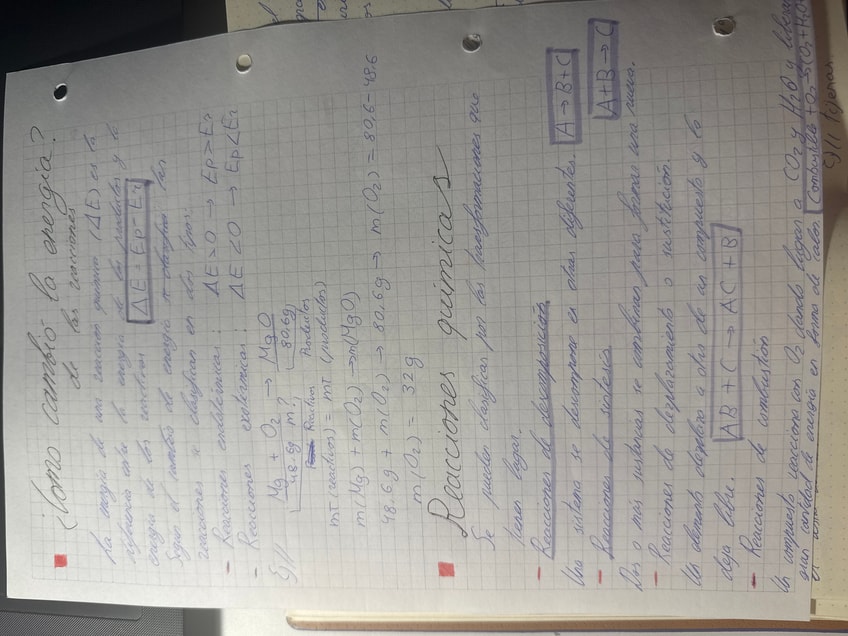 ¿Como cambió la energia?
de las reacciones
La energía de una reacción química (ΔE) es la
diferencia entre la energía de los productos y la
energía de los reactivos ΔE = Ep - Er
Segun el cambio de energía se clasifica las
reacciones se clasifican en dos tipos:
- Reacciones endotérmicas: ΔE>0 → Ep>Er
- Reacciones exotérmicas: ΔE<0 → Ep<Er
Ej// Mg + O2 → MgO
48.6g m? 80,6g
Reactivos Productos
mT (reactivos) = mT (productos)
m(Mg) + m(O2) → m(MgO)
48.6g + m(O2) → 80,6g → m(O2) = 80,6-48.6
m(O2) = 32g
Reacciones químicas
Se pueden clasificar por las transformaciones que
tienen lugar.
- Reacciones de descomposición
Una sustancia se descompone en otras diferentes. A → B+C
- Reacciones de sintesis
Dos o más sustancias se combinan para formar una nueva. A+B → C
- Reacciones de desplazamiento o sustitución.
Un elemento desplaza a otro de un compuesto y lo
deja libre. AB + C → AC + B
- Reacciones de combustión
Un compuesto reacciona con O2 dando lugar a CO2 y H2O y
gran cantidad de energía en forma de calor Combustible + O2 → CO2 + H2O